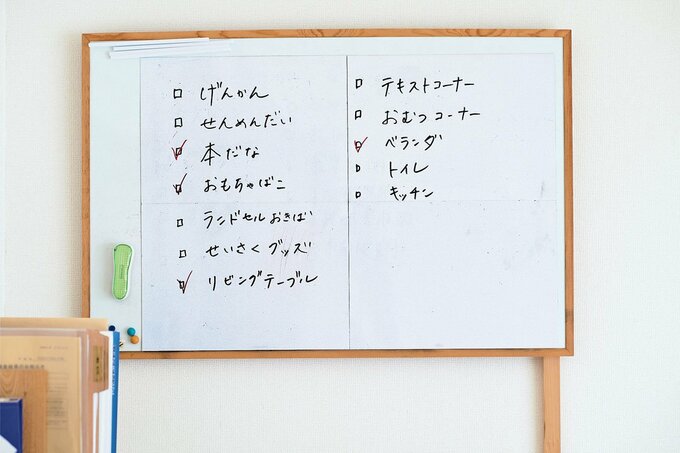 □ げんかん
□ せんめんだい
☑ 本だな
☑ おもちゃばこ
□ ランドセルおきば
□ せいさくグッズ
☑ リビングテーブル
□ テキストコーナー
□ おむつコーナー
☑ ベランダ
□ トイレ
□ キッチン